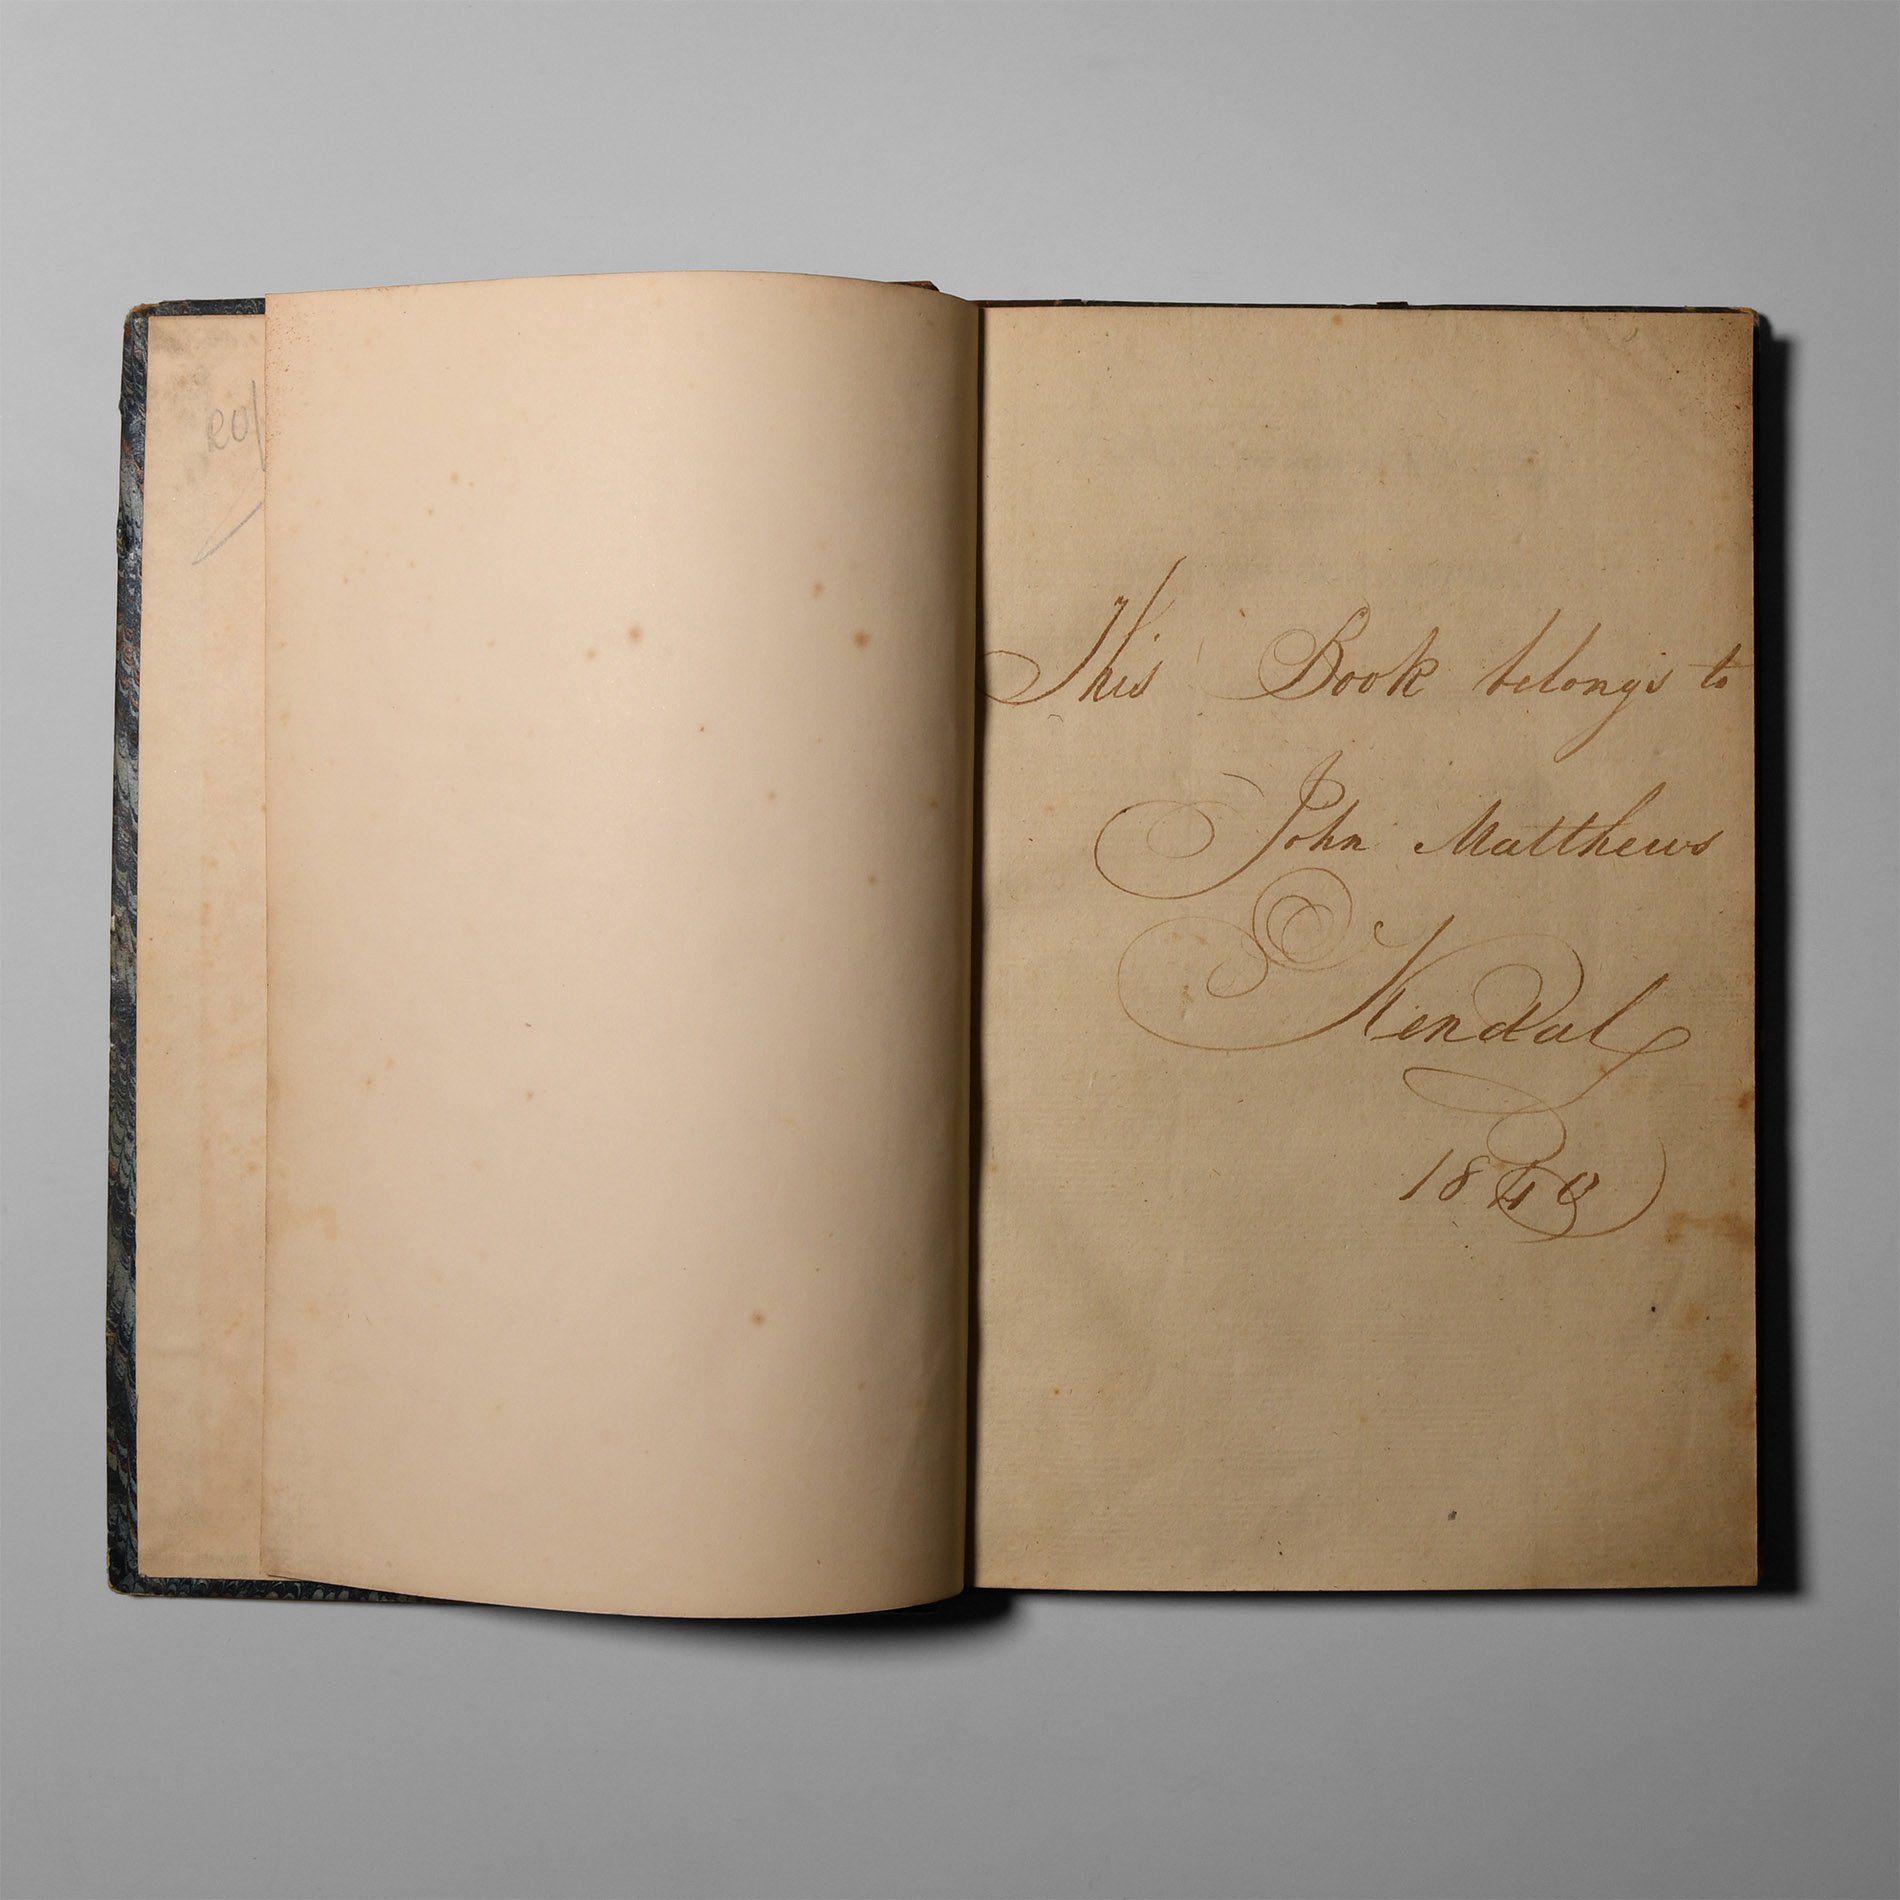 This Book belongs to
John Matthews
Kendal
1840